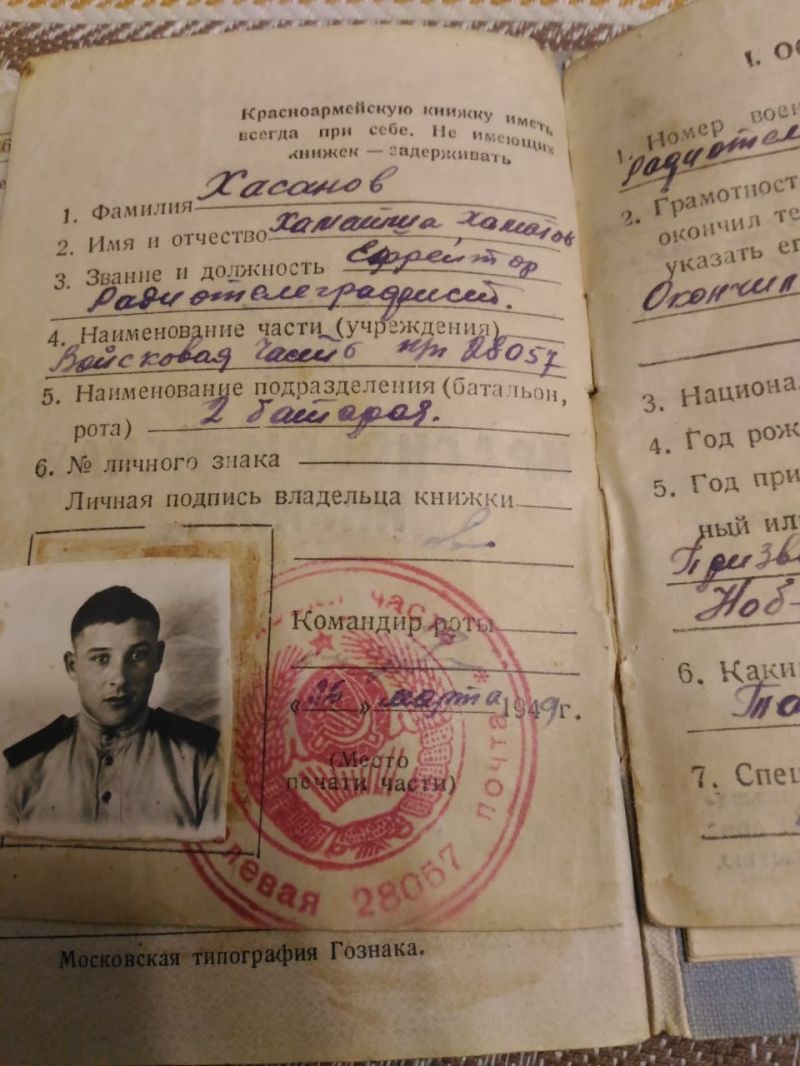 Красноармейскую книжку иметь
всегда при себе. Не имеющих
книжек — задерживать
1. Фамилия Хасанов
2. Имя и отчество
3. Звание и должность Ефрейтор
Радиотелеграфист.
4. Наименование части (учреждения)
Войсковая часть пп 28057
5. Наименование подразделения (батальон,
рота) 2 батарея.
6. № личного знака
Личная подпись владельца книжки
Командир роты
« » марта 1949 г.
(Место
печати части)
часть * полевая почта * 28057
Московская типография Гознака.
1. Ос
1. Номер воен
Радиотеле
2. Грамотност
окончил те
указать ег
Окончил
3. Национал
4. Год рож
5. Год при
ный ил
Призв
6. Каки
7. Спец